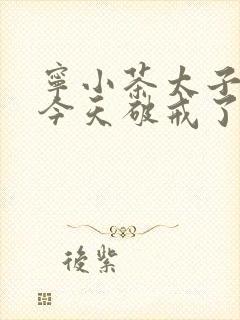 寧小茶太子
今天破戒了
後紫